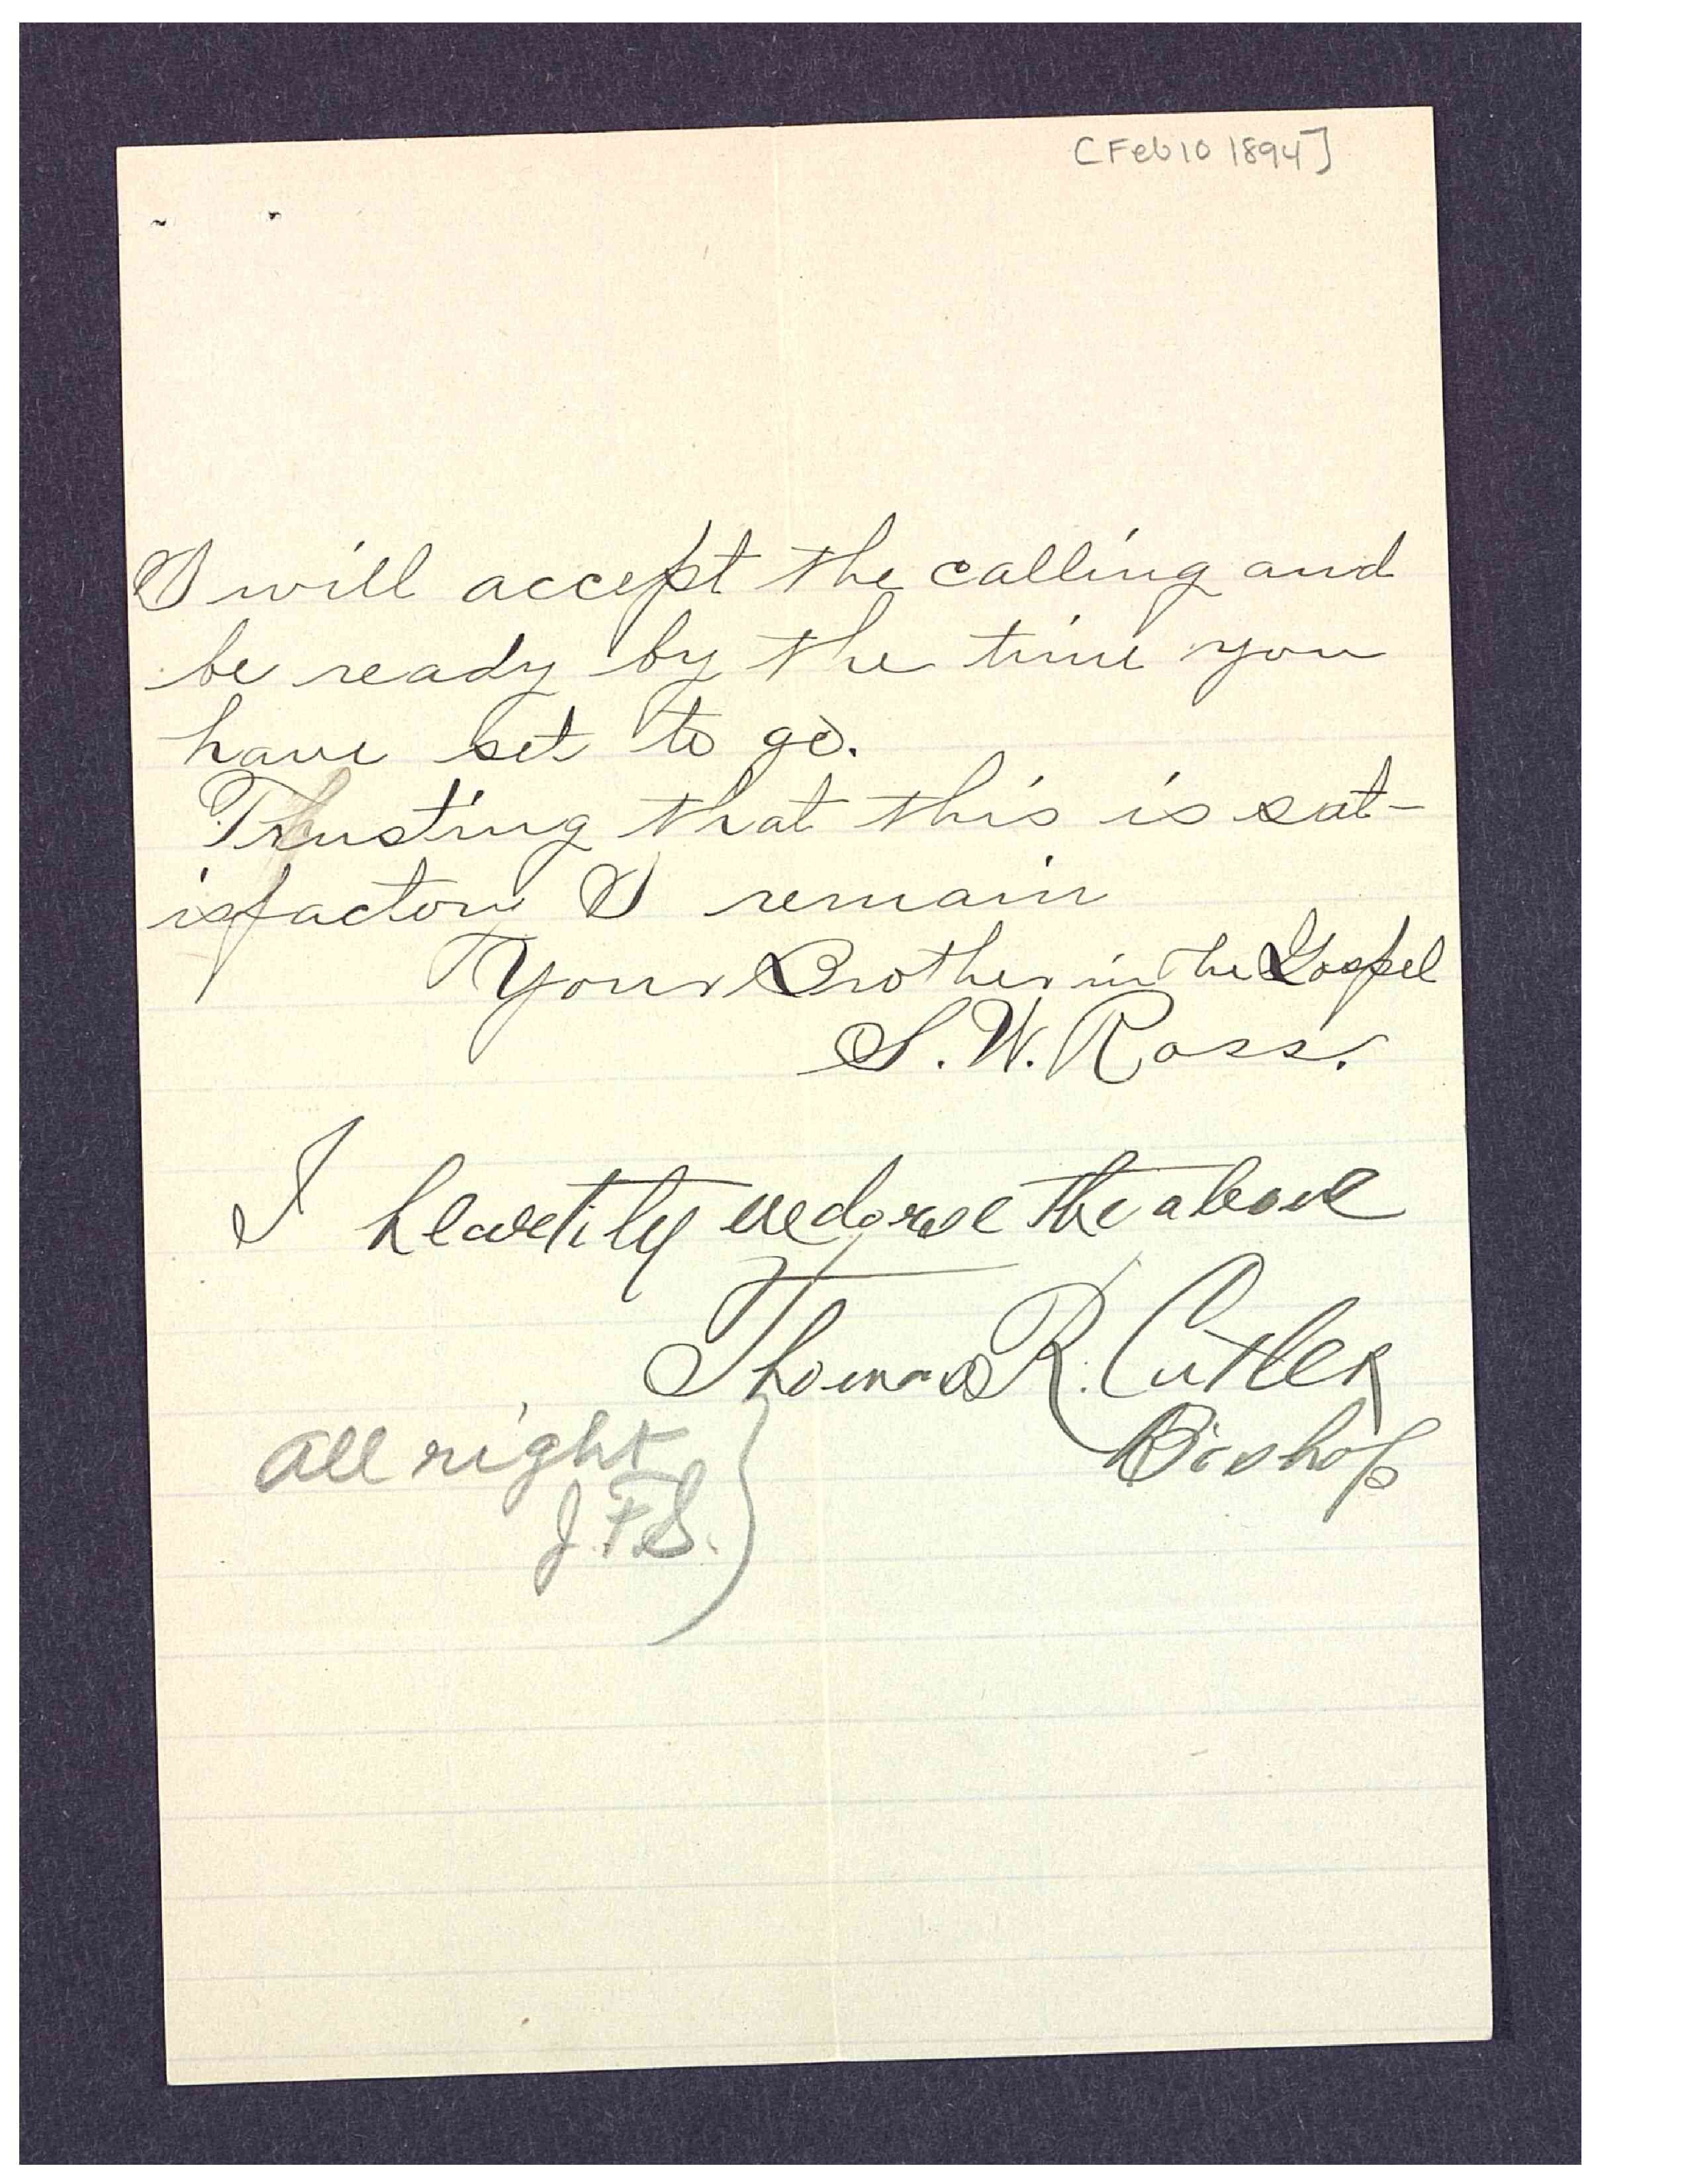 [Feb 10 1894]
I will accept the calling and
be ready by the time you
have set to go.
Trusting that this is sat-
isfactory I remain
Your Brother in the Gospel
S. W. Ross.
I heartily endorse the above
Thomas R. Cutler
Bishop
All right
J. F. S.